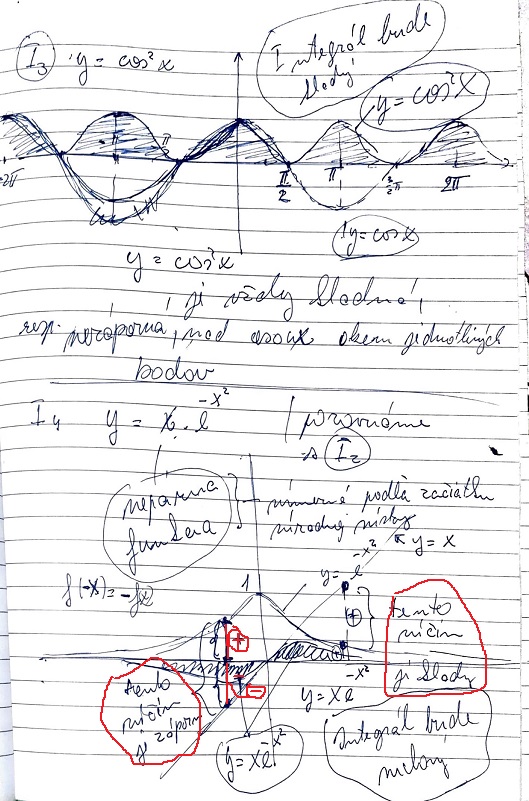 I₃ y = cos²x
Integrál bude
kladný
y = cos²x
-2π π/2 π/2 π 3/2π 2π
y = cosx
y = cos²x
je vždy kladná,
resp. nezáporná, nad osou x okrem jednotlivých
bodov
I₄ y = x.e^(-x²) porovnáme
I₂
nepárna
funkcia
súmerné podľa začiatku
y = x
f(-x) = -f(x)
1
y = e^(-x²)
+
+
-
tento
súčin
je kladný
tento
súčin
je záporn
y = xe^(-x²)
y = xe^(-x²)
Integrál bude
nulový